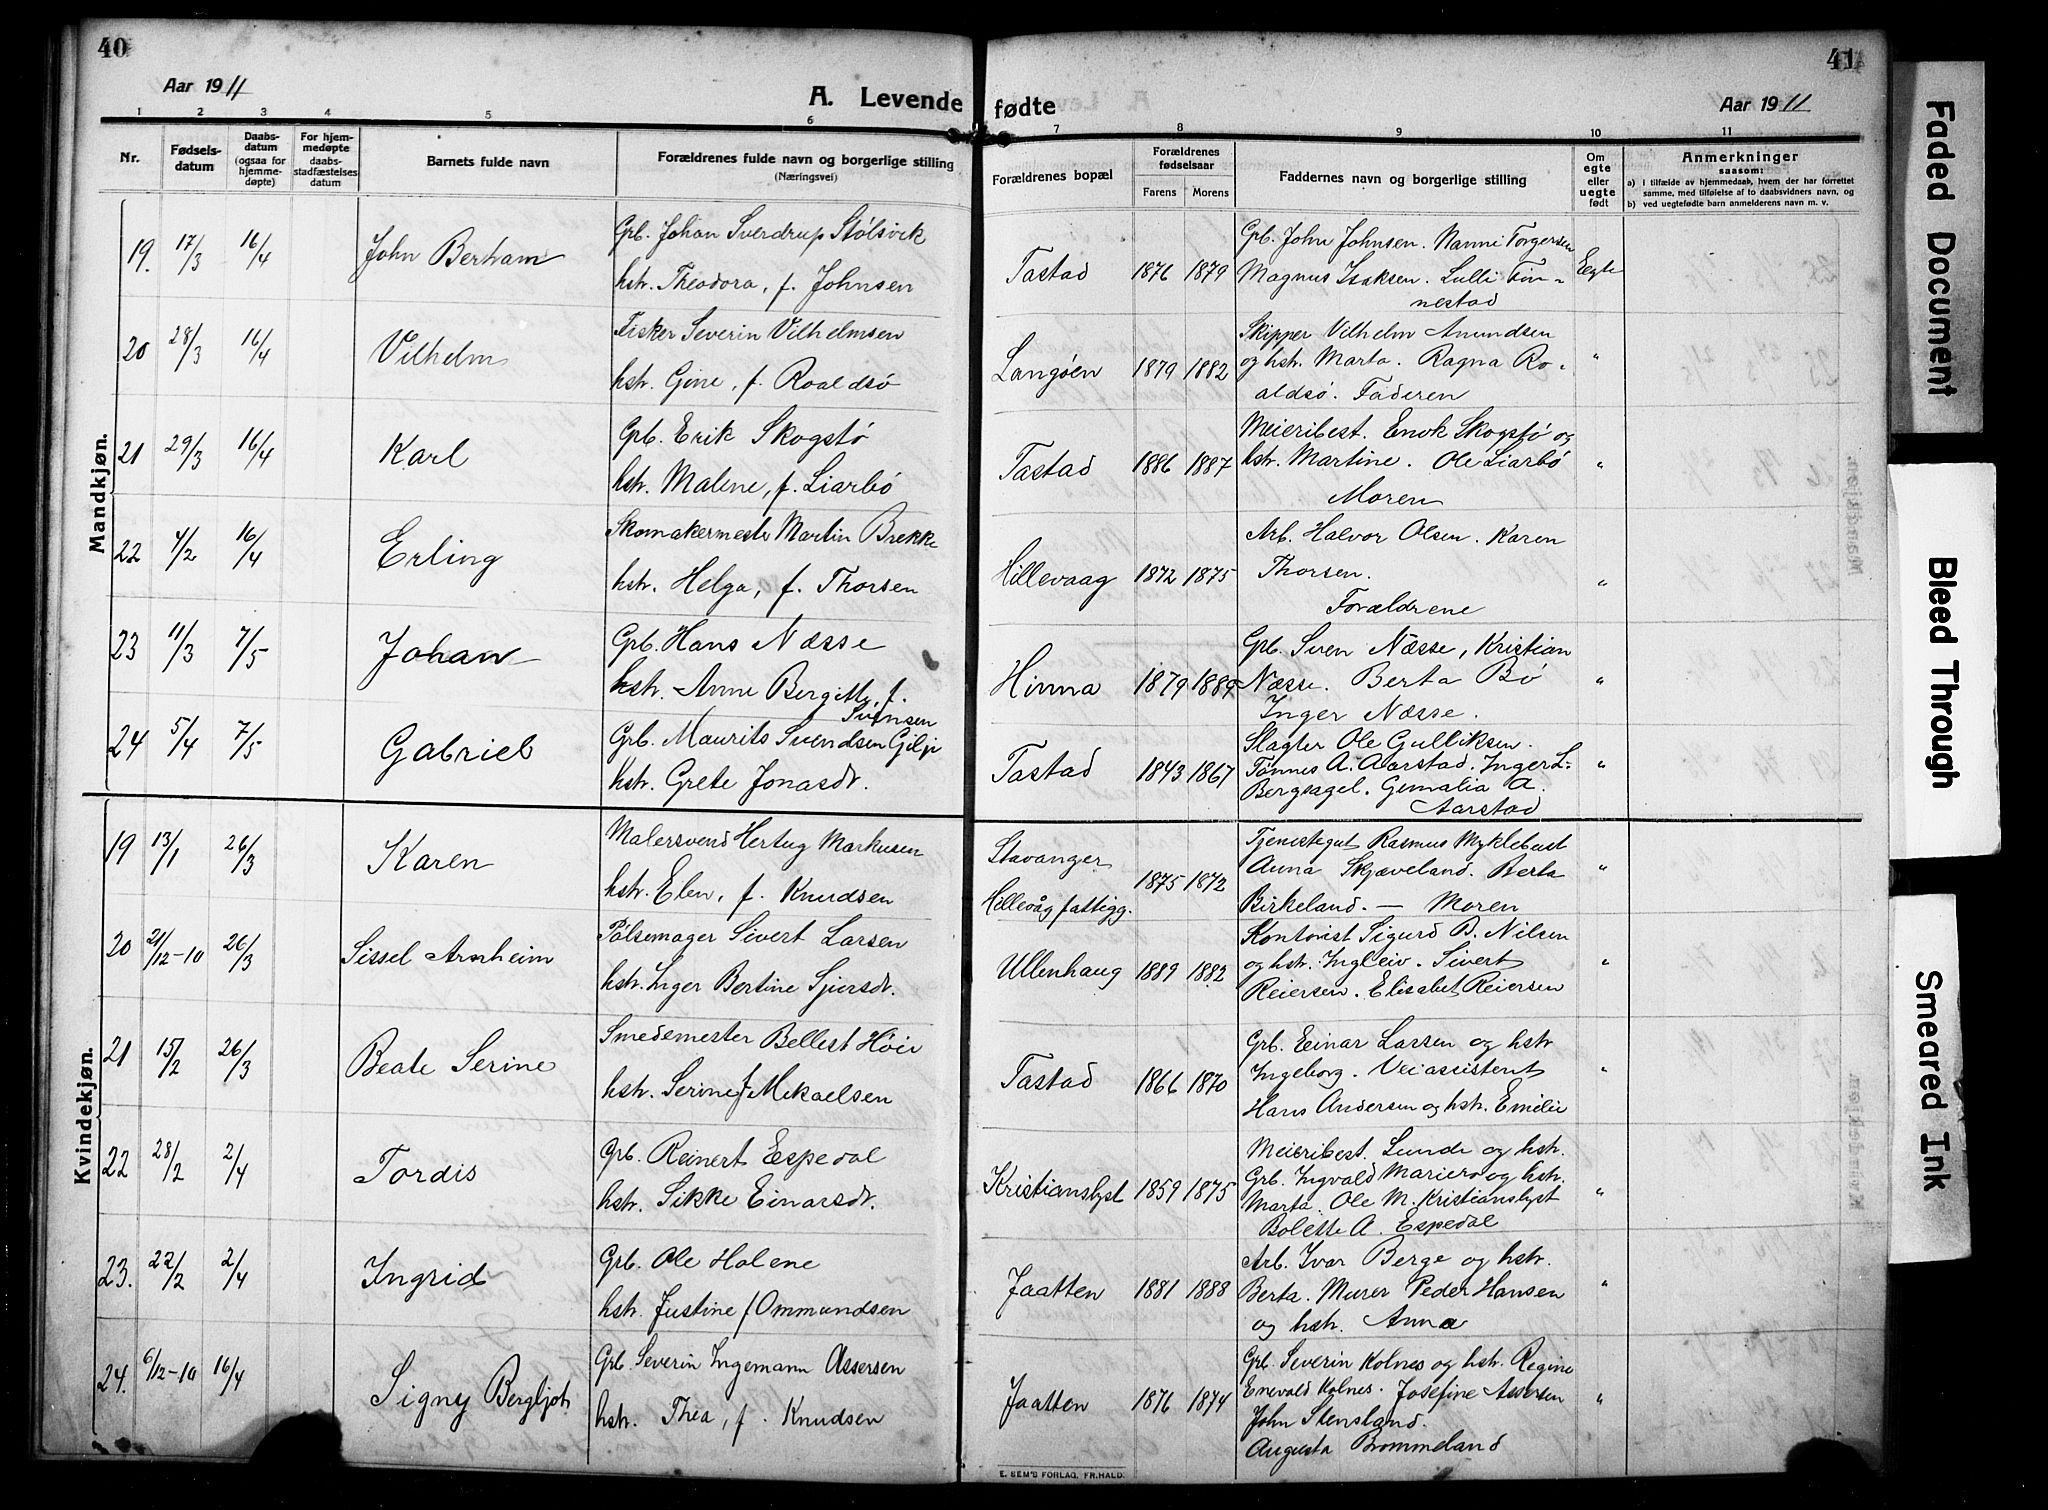 40
Aar 1911
A. Levende
1 2 3 4 5 6
Nr.
Fødsels-
datum
Daabs-
datum
(ogsaa for
hjemme-
døpte)
For hjem-
medøpte
daabs-
stadfæstelses
datum
Barnets fulde navn
Forældrenes fulde navn og borgerlige stilling
(Næringsvei)
Mandkjøn.
19. 17/3 16/4 John Bertram
Grb. Johan Sverdrup Stølsvik
hstr. Theodora, f. Johnsen
20 28/3 16/4 Vilhelm
Fisker Severin Vilhelmsen
hstr. Gine, f. Roaldsø
21 29/3 16/4 Karl
Grb. Erik Skogstø
hstr. Malene, f. Liarbø
22 4/2 16/4 Erling
Skomakermester Martin Brekke
hstr. Helga, f. Thorsen
23 11/3 7/5 Johan
Grb. Hans Næsse
hstr. Anne Bergitte, f.
Svensen
24 5/4 7/5 Gabriel
Grb. Maurits Svendsen Gilje
hstr. Grete Jonasdr.
Kvindekjøn.
19 13/1 26/3 Karen
Malersvend Hertug Markusen
hstr. Elen, f. Knudsen
20 21/12-10 26/3 Sissel Arnheim
Pølsemager Sivert Larsen
hstr. Inger Bertine Sjursdr.
21 15/2 26/3 Beate Serine
Smedemester Bellest Høie
hstr. Serine f. Mikaelsen
22 28/2 2/4 Tordis
Grb. Reinert Espedal
hstr. Sikke Einarsdr.
23. 22/2 2/4 Ingrid
Grb. Ole Halene
hstr. Justine f. Ommundsen
24. 6/12-10 16/4 Signy Bergljot
Grb. Severin Ingemann Assersen
hstr. Thea, f. Knudsen
41
fødte
Aar 1911
7 8 9 10 11
Forældrenes bopæl
Forældrenes
fødselsaar
Farens Morens
Faddernes navn og borgerlige stilling
Om
egte
eller
uegte
født
Anmerkninger
saasom:
a) I tilfælde av hjemmedaab, hvem der har forrettet
samme, med tilføielse af to daabsvidners navn, og
b) ved uegtefødte barn anmelderens navn m. v.
Tastad 1876 1879
Grb. John Johnsen. Nanni Torgersen
Magnus Isaksen. Lulli Tin-
nestad
Egte
Langøen 1879 1882
Skipper Vilhelm Amundsen
og hstr. Marta. Ragna Ro-
aldsø. Faderen
"
Tastad 1886 1887
Meieribest. Enok Skogstø og
hstr. Martine. Ole Liarbø
Moren
"
Hillevaag 1872 1875
Arb. Halvor Olsen. Karen
Thorsen.
Forældrene
"
Hinna 1879 1889
Grb. Sven Næsse, Kristian
Næsse. Berta Bø
Inger Næsse.
"
Tastad 1843 1867
Slagter Ole Gulliksen.
Tønnes A. Aarstad. Inger L.
Bergsagel. Gemalia A.
Aarstad
"
Stavanger
Hillevåg fattigg.
1875 1872
Tjenestegut Rasmus Myklebust
Anna Skjæveland. Berta
Birkeland. — Moren
"
Ullenhaug 1889 1882
Kontorist Sigurd B. Nilsen
og hstr. Ingleiv. Sivert
Reiersen. Elisabet Reiersen
"
Tastad 1866 1870
Grb. Einar Larsen og hstr
Ingeborg. Veiassistent
Hans Andersen og hstr. Emilie
"
Kristianslyst 1859 1875
Meieribest. Lunde og hstr.
Grb. Ingvald Mariero og hstr.
Marta. Ole M. Kristianslyst
Bolette A. Espedal
"
Jaatten 1881 1888
Arb. Ivar Berge og hstr.
Berta. Murer Peder Hansen
og hstr. Anna
"
Jaatten 1876 1874
Grb. Severin Kolnes og hstr. Regine
Enevald Kolnes. Josefine Assersen
John Stensland.
Augusta Brommeland
"
E. SEM'S FORLAG, FR.HALD.
Faded Document
Bleed Through
Smeared Ink